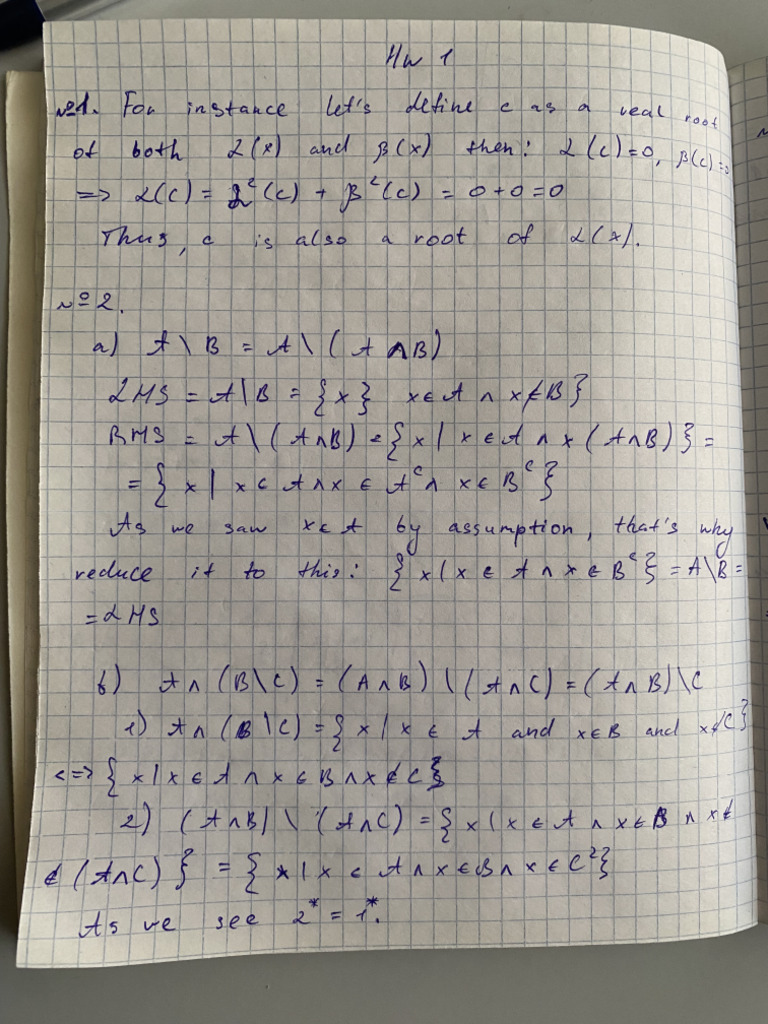 HW 1
№1. For instance let's define c as a real root
of both α(x) and β(x) then: α(c)=0, β(c)=0
=> α(c) = α²(c) + β²(c) = 0+0=0
Thus, c is also a root of α(x).
№2.
a) A \ B = A \ (A ∧ B)
LHS = A\B = {x} x∈A ∧ x∉B}
RHS = A \ (A∩B) = {x | x ∈ A ∧ x (A∩B)} =
= {x | x ∈ A ∧ x ∈ Aᶜ ∧ x ∈ Bᶜ}
As we saw x∈A by assumption, that's why
reduce it to this: {x | x ∈ A ∧ x ∈ Bᶜ} = A\B =
= LHS
b) A∩(B\C) = (A∩B) \ (A∩C) = (A∩B)\C
1) A∩(B\C) = {x | x ∈ A and x∈B and x∉C}
<=> {x | x ∈ A ∧ x ∈ B ∧ x ∉ C}
2) (A∩B) \ (A∩C) = {x | x ∈ A ∧ x∈B ∧ x∉
∉ (A∩C)} = {x | x ∈ A ∧ x ∈ B ∧ x ∈ C²}
As we see 2* = 1*.